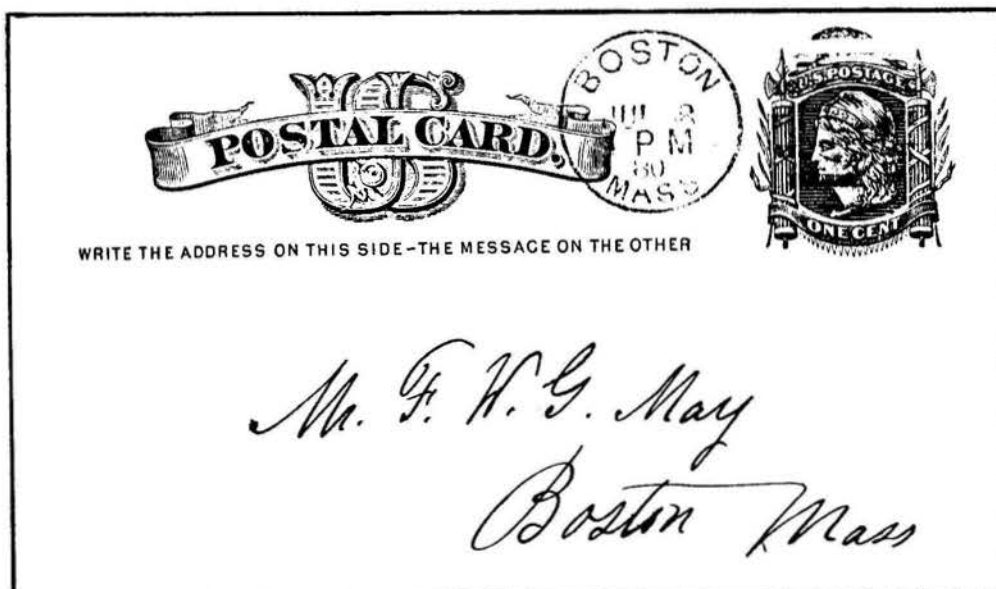 US
POSTAL CARD.
BOSTON
JUL 8
PM
80
MASS
U.S. POSTAGE
ONE CENT
WRITE THE ADDRESS ON THIS SIDE–THE MESSAGE ON THE OTHER
Mr. F. W. G. May
Boston Mass